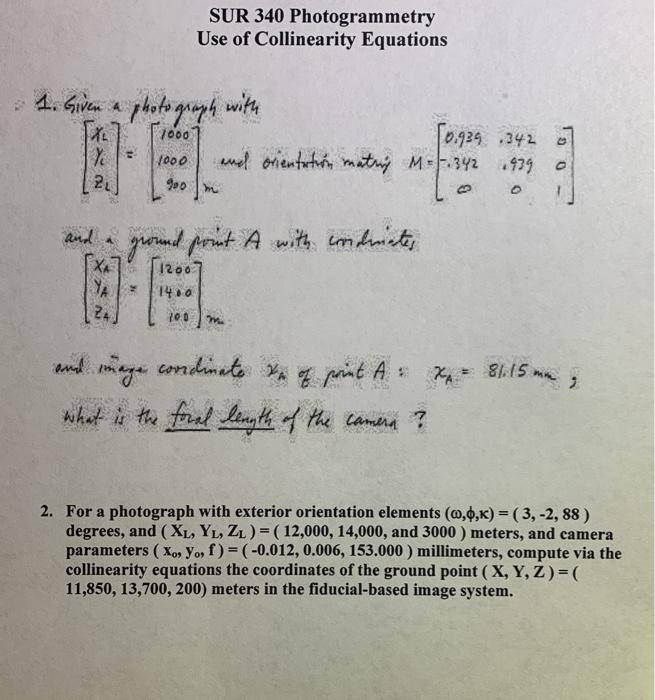 SUR 340 Photogrammetry
Use of Collinearity Equations
1. Given a photograph with
[XL YL ZL] = [1000 1000 900] m and orientation matrix M = [0.939 .342 0
-.342 .939 0
0 0 1]
and a ground point A with coordinates
[XA YA ZA] = [1200 1400 100] m
and image coordinate xA of point A : xA = 81.15 mm ,
what is the focal length of the camera ?
2. For a photograph with exterior orientation elements (ω,ϕ,κ) = ( 3, -2, 88 )
degrees, and ( XL, YL, ZL ) = ( 12,000, 14,000, and 3000 ) meters, and camera
parameters ( xo, yo, f ) = ( -0.012, 0.006, 153.000 ) millimeters, compute via the
collinearity equations the coordinates of the ground point ( X, Y, Z ) = (
11,850, 13,700, 200) meters in the fiducial-based image system.